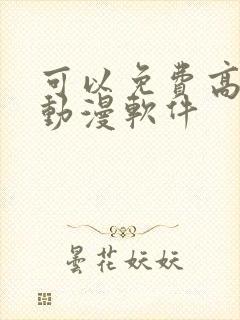 可以免費高
動漫軟件
曇花妖妖